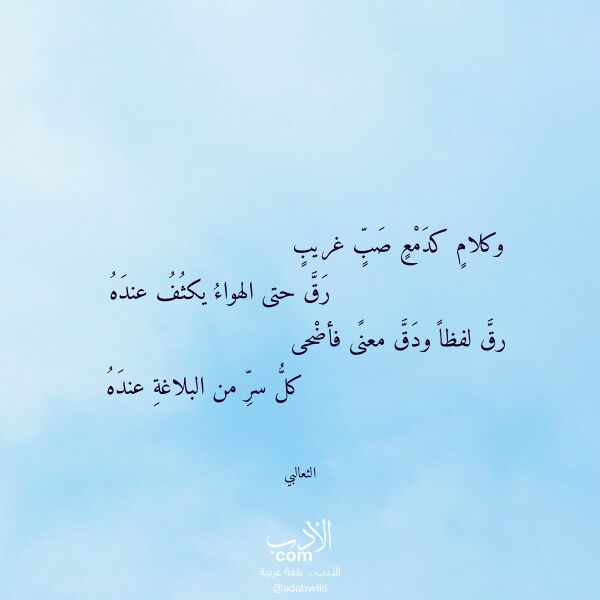 وكلامٍ كدَمْعٍ صَبٍّ غريبٍ
رَقَّ حتى الهواءُ يكثُفُ عندَهُ
رقَّ لفظاً ودَقَّ معنًى فأضْحى
كلُّ سرٍّ من البلاغةِ عندَهُ
الثعالبي
الأدب
com
الأدب .. بلغة عربية
@adabwiki